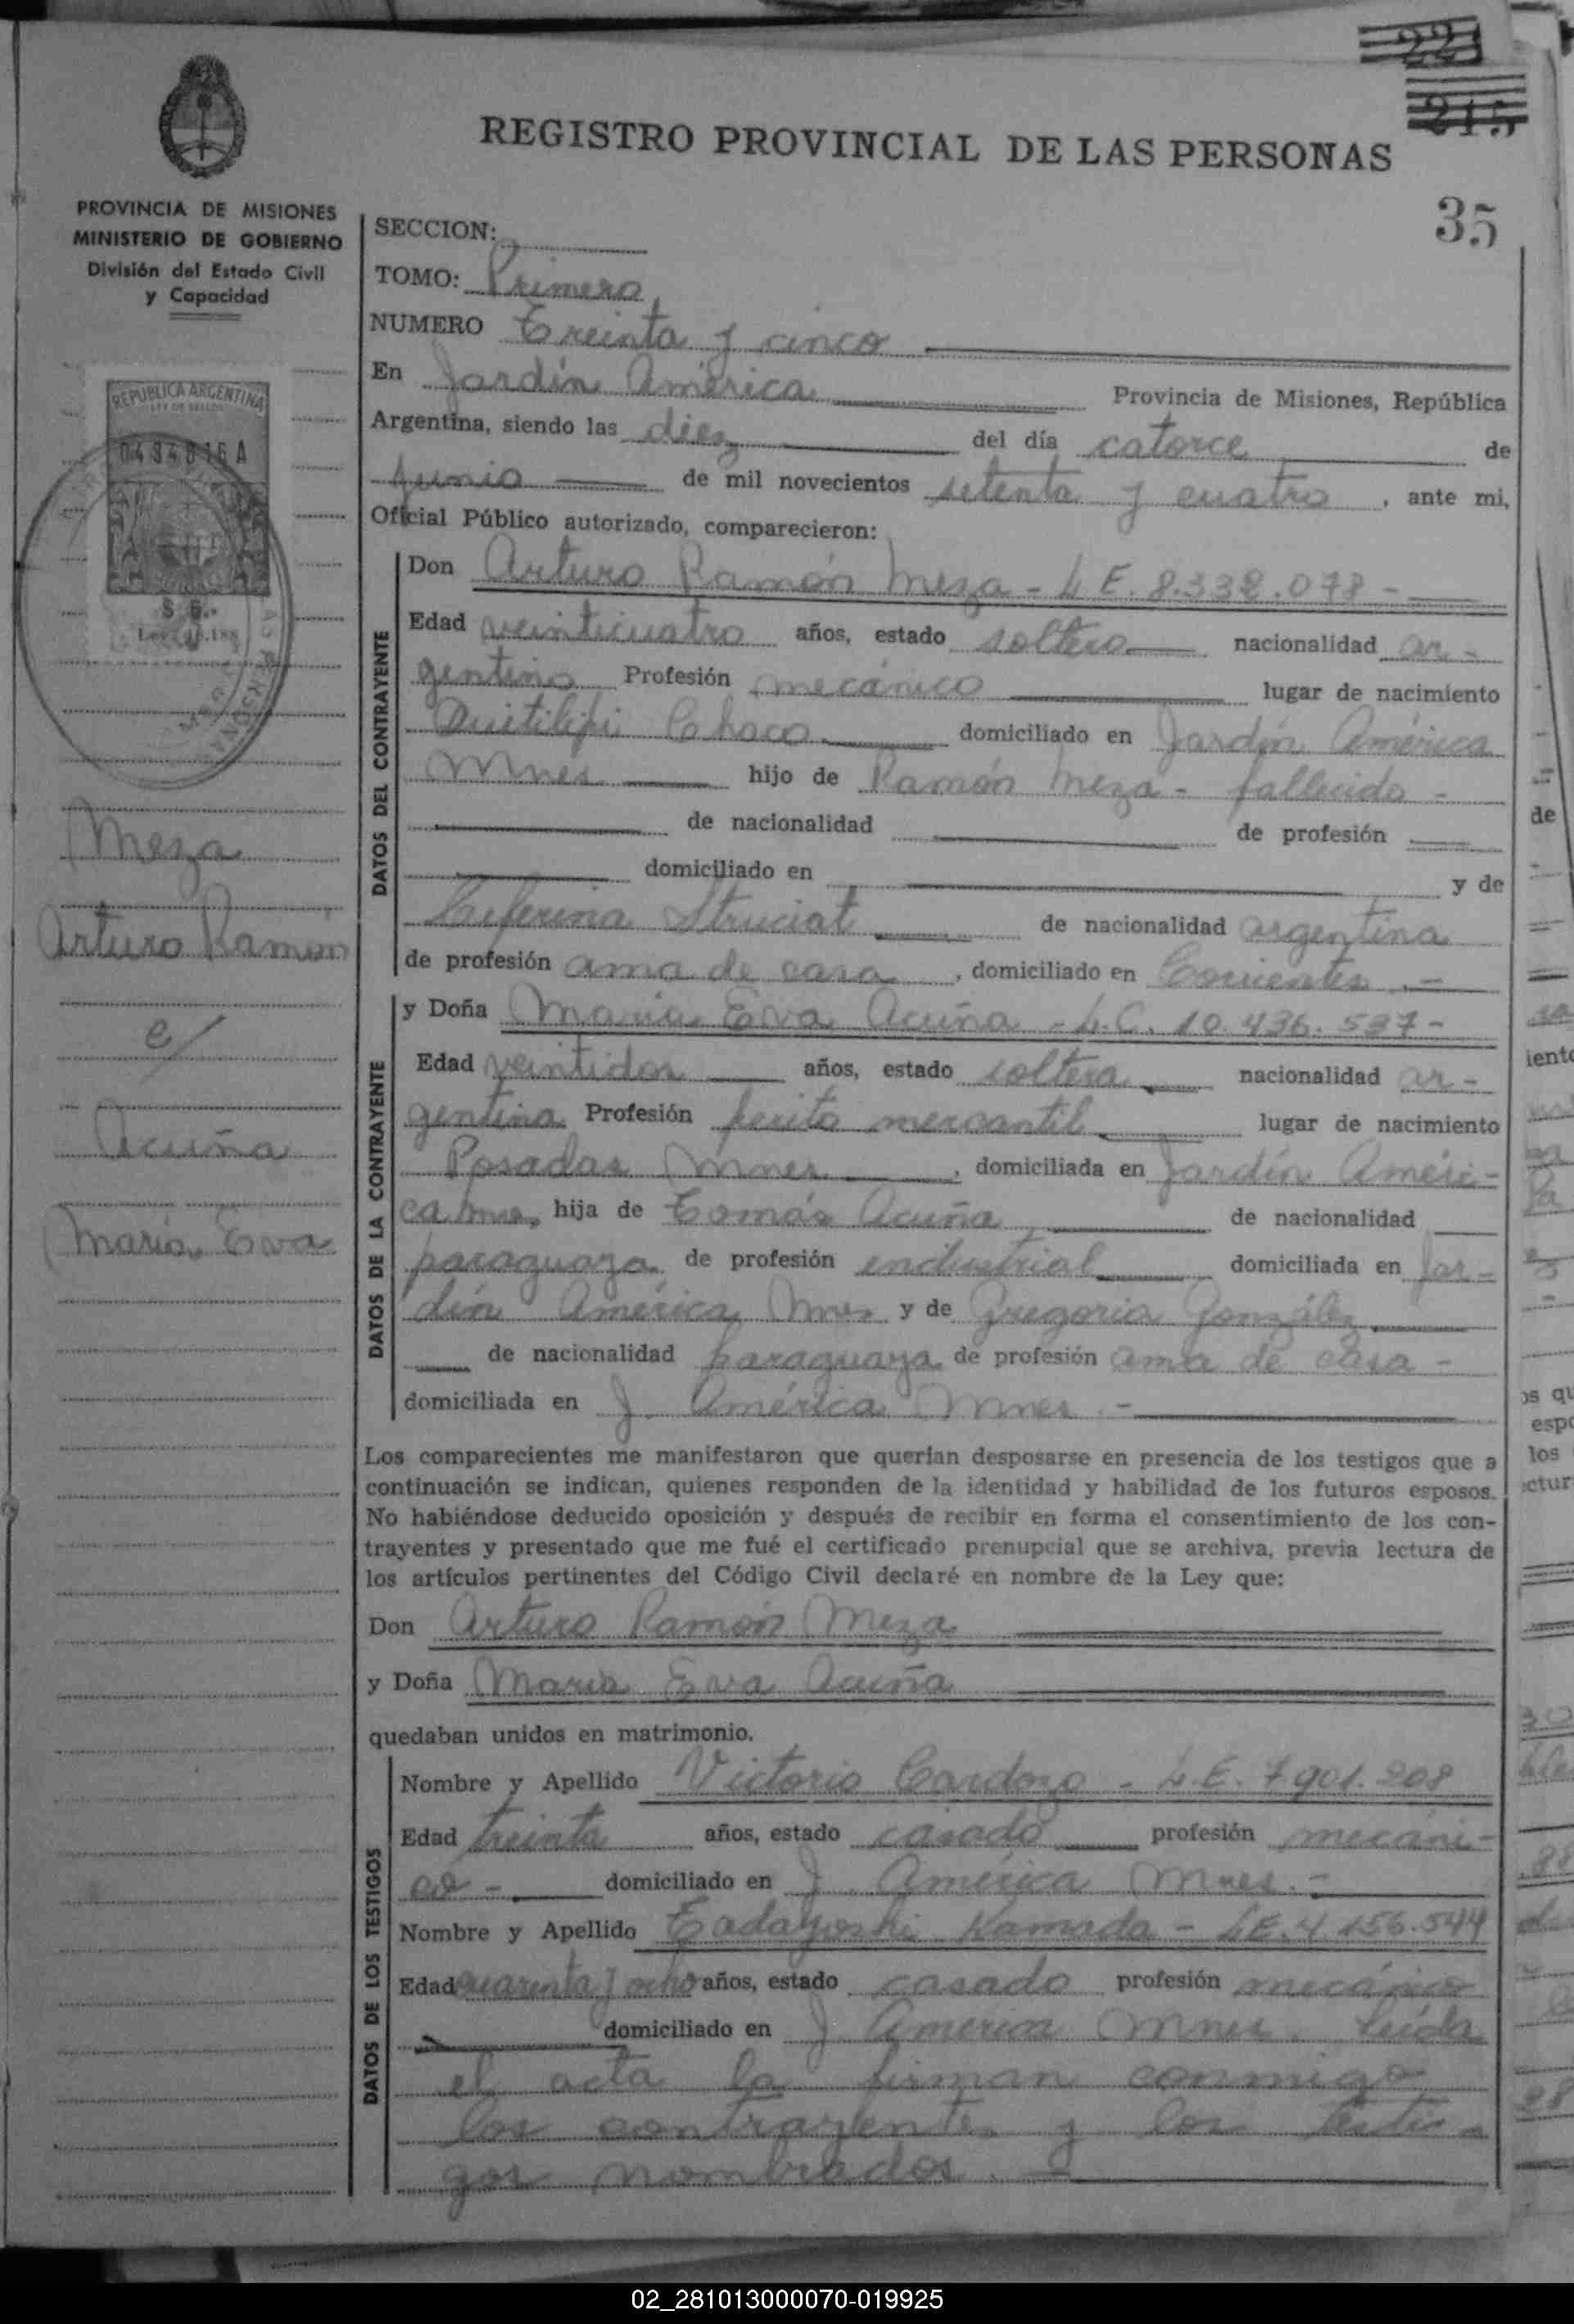 22
215
REGISTRO PROVINCIAL DE LAS PERSONAS
35
PROVINCIA DE MISIONES
MINISTERIO DE GOBIERNO
División del Estado Civil
y Capacidad
REPUBLICA ARGENTINA
LEY DE SELLOS
SECCION:
TOMO: Primero
NUMERO Treinta y cinco
En Jardín América Provincia de Misiones, República
Argentina, siendo las diez del día catorce de
junio de mil novecientos setenta y cuatro, ante mi,
Oficial Público autorizado, comparecieron:
DATOS DEL CONTRAYENTE
Don Arturo Ramón Meza - L E. 8.332.078 -
Edad veinticuatro años, estado soltero nacionalidad ar-
gentino Profesión mecánico lugar de nacimiento
Quitilipi Chaco domiciliado en Jardín América
Mnes hijo de Ramón Meza - fallecido -
de nacionalidad de profesión
domiciliado en y de
Ceferina Struciat de nacionalidad argentina
de profesión ama de casa, domiciliado en Corrientes.-
Meza
Arturo Ramón
c/
Acuña
María Eva
DATOS DE LA CONTRAYENTE
y Doña María Eva Acuña - L.C. 10.436.537-
Edad veintidos años, estado soltera nacionalidad ar-
gentina Profesión perito mercantil lugar de nacimiento
Posadas Mnes, domiciliada en Jardín Améri-
ca Mnes, hija de Tomás Acuña de nacionalidad
paraguaya de profesión industrial domiciliada en Jar-
dín América Mnes y de Gregoria González
de nacionalidad paraguaya de profesión ama de casa -
domiciliada en J. América Mnes.-
Los comparecientes me manifestaron que querían desposarse en presencia de los testigos que a
continuación se indican, quienes responden de la identidad y habilidad de los futuros esposos.
No habiéndose deducido oposición y después de recibir en forma el consentimiento de los con-
trayentes y presentado que me fué el certificado prenupcial que se archiva, previa lectura de
los artículos pertinentes del Código Civil declaré en nombre de la Ley que:
Don Arturo Ramón Meza
y Doña María Eva Acuña
quedaban unidos en matrimonio.
DATOS DE LOS TESTIGOS
Nombre y Apellido Victorio Cardozo - L.E. 7901.208
Edad treinta años, estado casado profesión mecáni-
co - domiciliado en J. América Mnes.-
Nombre y Apellido Tadayoshi Kamada - LE. 4.156.544
Edad cuarenta y ocho años, estado casado profesión mecánico
domiciliado en J América Mnes. Leída
el acta la firman conmigo
los contrayentes y los testi-
gos nombrados.-
02_281013000070-019925